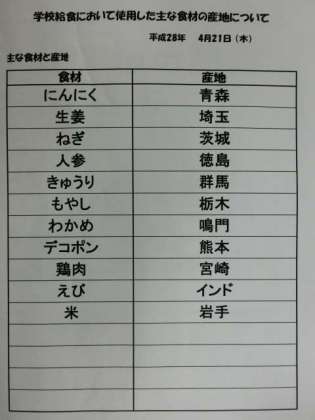 学校給食において使用した主な食材の産地について
平成28年 4月21日（木）
主な食材と産地
食材 産地
にんにく 青森
生姜 埼玉
ねぎ 茨城
人参 徳島
きゅうり 群馬
もやし 栃木
わかめ 鳴門
デコポン 熊本
鶏肉 宮崎
えび インド
米 岩手